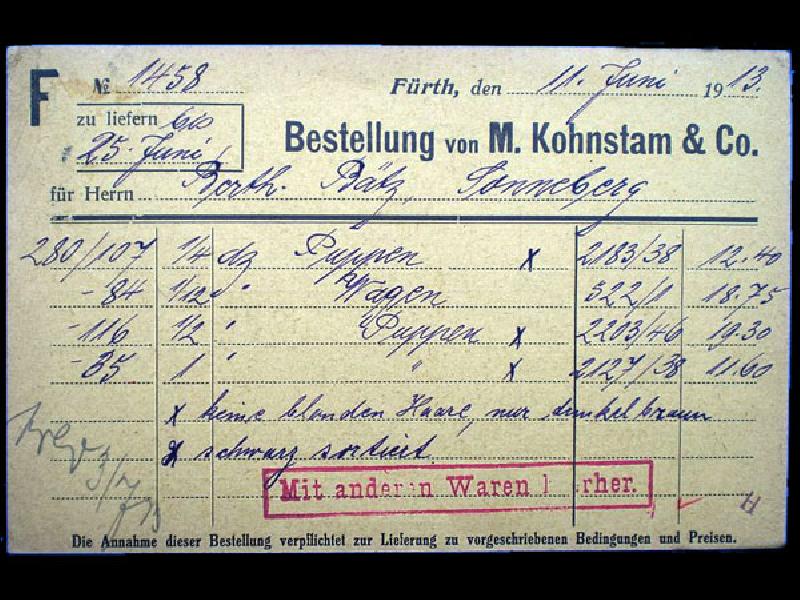 F № 1458 Fürth, den 11. Juni 1913.
zu liefern bis
25. Juni
Bestellung von M. Kohnstam & Co.
für Herrn Berth. Bätz, Sonneberg
280/107 1/4 dz Puppen x 2183/38 12.40
-84 1/12 " Wagen 322/1 18.75
-116 1/2 " Puppen x 2203/46 19.30
-35 1 " " x 2127/38 11.60
x keine blonden Haare, nur dunkelbraun
x schwarz sortiert.
Mit anderen Waren rher.
Die Annahme dieser Bestellung verpflichtet zur Lieferung zu vorgeschriebenen Bedingungen und Preisen.